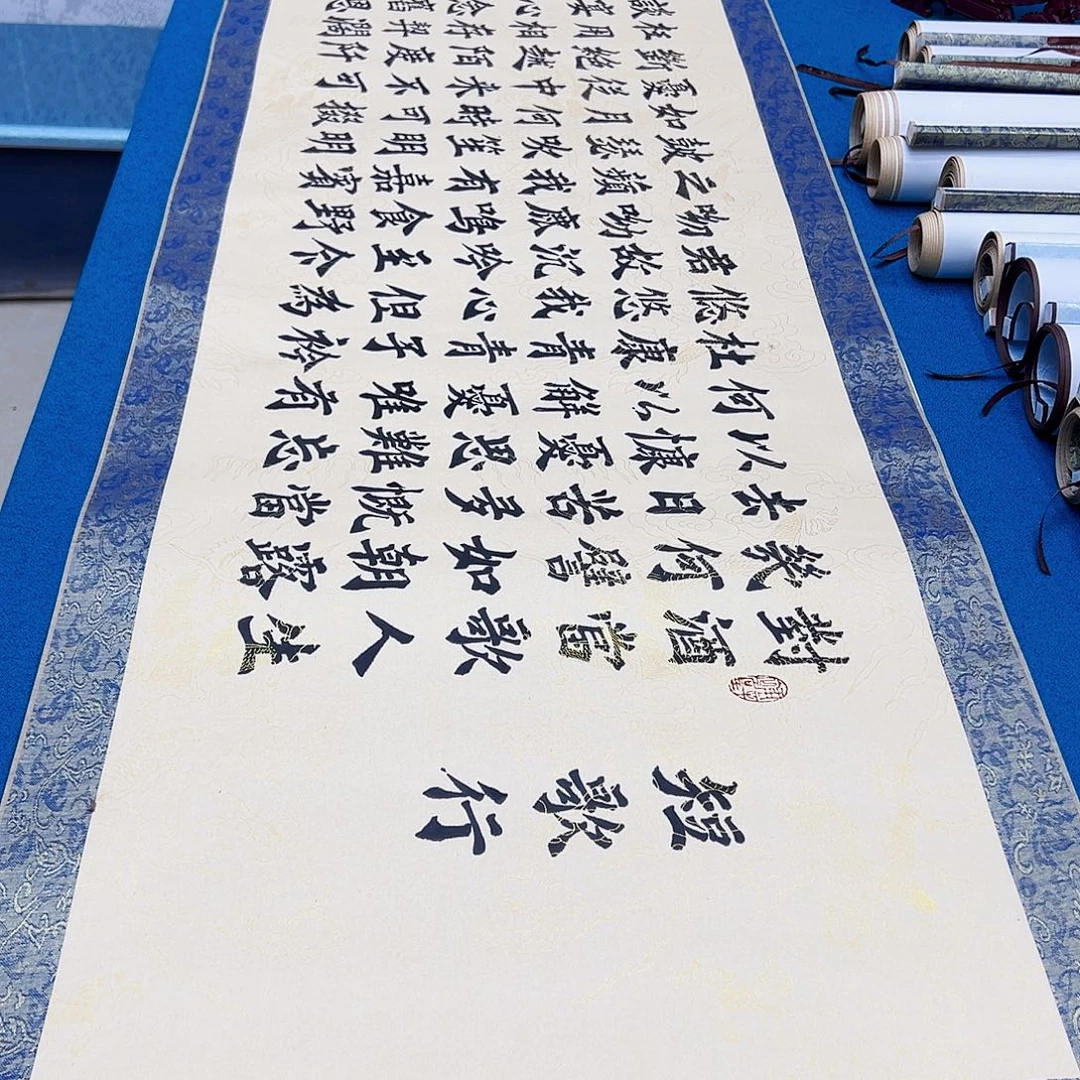 短歌行
對酒當歌人生
幾何譬如朝露
去日苦多慨當
以慷憂思難忘
何以解憂唯有
杜康青青子衿
悠悠我心但為
君故沉吟至今
呦呦鹿鳴食野
之蘋我有嘉賓
鼓瑟吹笙明明
如月何時可掇
憂從中來不可
斷絕越陌度阡
枉用相存契闊
談宴心念舊恩